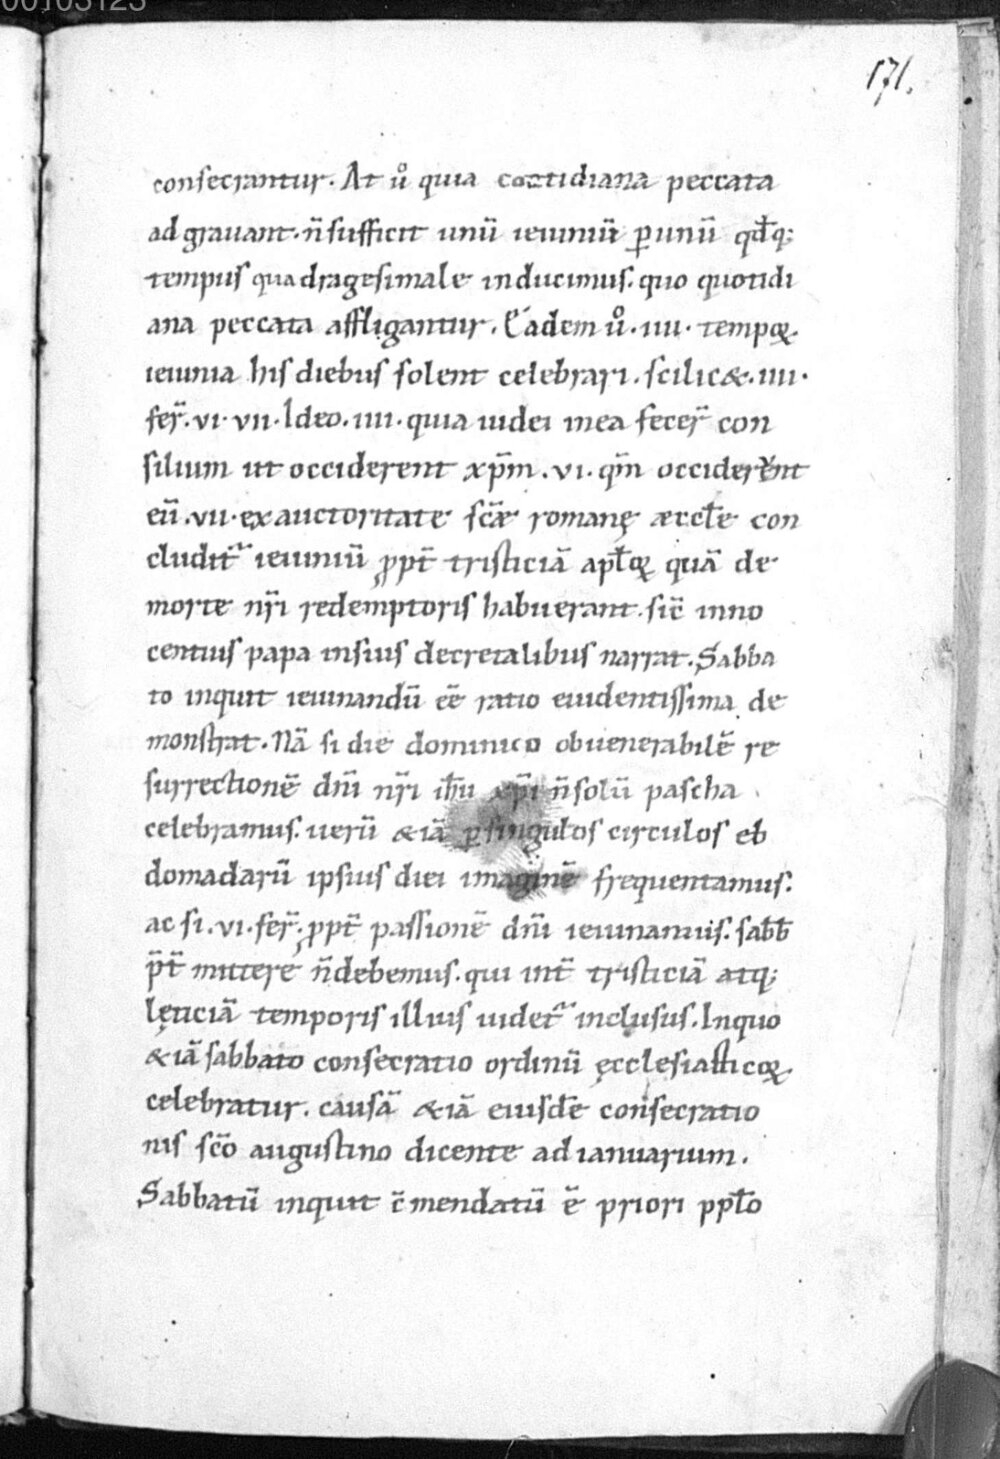 00103123
171.
consecrantur. At ů quia cottidiana peccata
ad grauant. n̄ sufficit unū ieiuniū ꝑ unū qđq;
tempus quadragesimale inducimus. quo quotidi
ana peccata affligantur. Eadem ů. iiii. tempoꝝ.
ieiunia his diebus solent celebrari. scilic&. iiii.
fer̄. vi. vii. Ideo. iiii. quia iudei in ea fecer̄ con
silium ut occiderent xp̄m. vi. qm̄ occiderent
eū. vii. ex auctoritate scǣ romanę æccłe con
cludit᷑ ieiuniū ꝓpt̄ tristiciā apłoꝝ quā de
morte nr̄i redemptoris habuerant. sic̄ inno
centius papa in suis decretalibus narrat. Sabba
to inquit ieiunandū eē ratio euidentissima de
monstrat. Nā si die dominico ob uenerabilē re
surrectionē dn̄i nr̄i ih̄u xp̄i n̄ solū pascha
celebramus. uerū &iā ꝑ singulos circulos eb
domadarū ipsius diei imaginē frequentamus.
ac si. vi. fer̄. ꝓpt̄ passionē dn̄i ieiunamus. sabb̄
p̄t̄ mittere n̄ debemus. qui int̄ tristiciā atq;
lęticiā temporis illius uidet᷑ inclusus. In quo
&iā sabbato consecratio ordinū ęcclesiasticoꝝ
celebratur. causā &iā eiusdē consecratio
nis scō augustino dicente ad ianuarium.
Sabbatū inquit c̄mendatū ē priori ppło